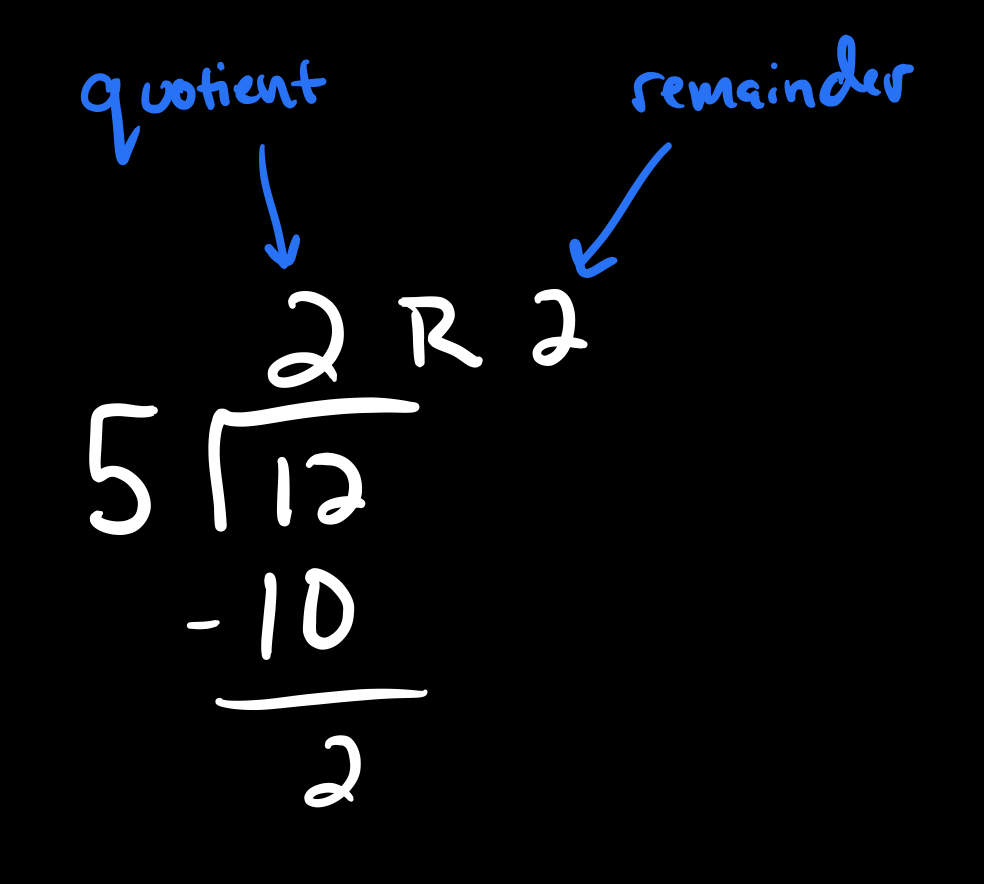 quotient remainder
2 R 2
5 12
- 10
2